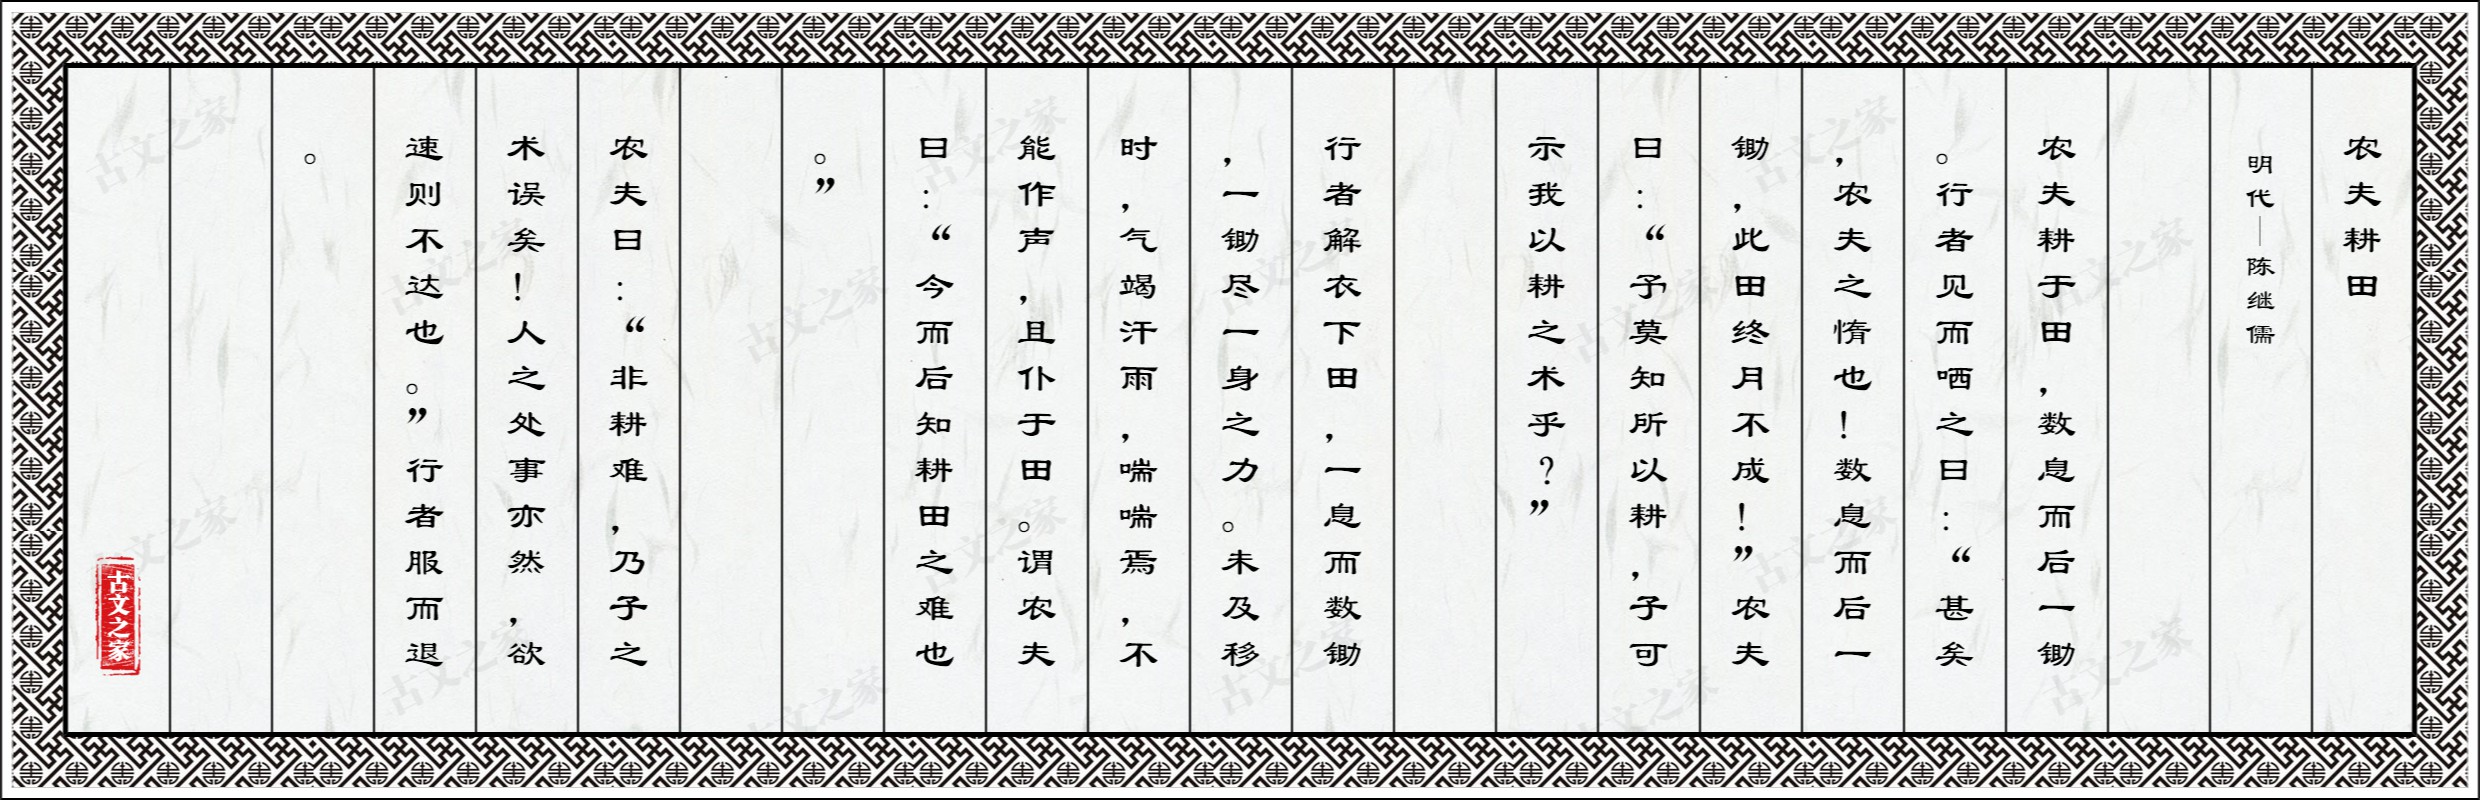 农夫耕田
明代｜陈继儒
农夫耕于田，数息而后一锄
。行者见而哂之曰：“甚矣
，农夫之惰也！数息而后一
锄，此田终月不成！”农夫
曰：“予莫知所以耕，子可
示我以耕之术乎？”
行者解衣下田，一息而数锄
，一锄尽一身之力。未及移
时，气竭汗雨，喘喘焉，不
能作声，且仆于田。谓农夫
曰：“今而后知耕田之难也
。”
农夫曰：“非耕难，乃子之
术误矣！人之处事亦然，欲
速则不达也。”行者服而退
。
古文之家